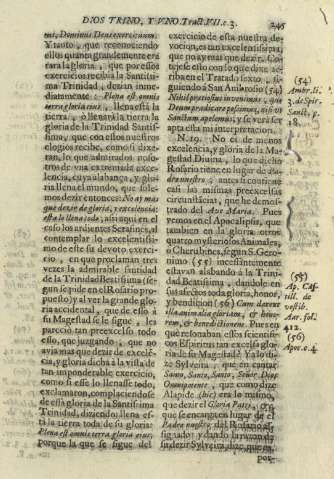 DIOS TRINO, Y VNO. Tract. VII. c. 3. 245
mi, Dominus Deus exercituum.
Y tanto, que reconociendo
ellos quan grandemente era
rara la gloria, que por essos
exercicios recibia la Santissi-
ma Trinidad, dezian inme-
diatamente: Plena est omnis
terra gloria eius, llena està la
tierra, ò llenarà la tierra la
gloria de la Trinidad Santis-
sima, que con essos nuestros
elogios recibe, como si dixe-
ran, le que admirados noso-
tros de vna estremada exce-
lencia, cuya alabança, y glo-
ria llena el mundo, que sole-
mos dezir entonces: No ay mas
que dezir de gloria, y excelencia:
esta lo llena todo, assi aqui en el
caso los ardientes Serafines, al
contemplar lo excelentissi-
mo de este su devoto exerci-
cio, en que proclaman tres
veces la admirable santidad
de la Trinidad Beatissima (se-
gun se pide en el Rosario pro-
puesto) y al ver la grande glo-
ria accidental, que de esso à
su Magestad se le sigue, les
pareciò tan preexcelso todo
esso, que juzgando, que no
avia mas que dezir de excelē-
cia, y gloria dicha à la vista de
tan imponderable exercicio,
como si esse lo llenasse todo,
exclamaron, complaciendose
de essa gloria de la Santissima
Trinidad, diziendo: llena es-
tà la tierra toda de su gloria:
Plena est omnis terra gloria eius;
porque la que se sigue del
exercicio de esta nuestra de-
vocion, es tan excelentissima,
que no ay mas que dezir. Co-
tejese esso con lo que dixe ar-
riba en el Tratado sexto, si-
guiendo à San Ambrosio (54)
Nihil pretiosius invenimus, quo
Deum praedicare possimus, nisi vt
Sanctum apelemus; y se verà ser
apta esta mi interpretacion.
N. 19. No es de menos
excelencia, y gloria de la Ma-
gestad Diuina, lo que dicho
Rosario tiene en lugar de Pa-
dre nuestro; antes si contiene
casi las mismas preexcelsas
circunstancias, que he demos-
trado del Ave Maria. Pues
vemos en el Apocalipsis, que
tambien en essa gloria otros
quatro mysteriosos Animales,
ò Cherubines, segun S. Gero-
nimo (55) incessantemente
estavan alabando à la Trini-
dad Beatissima, dandole en
sus alabanças toda gloria, honor,
y bendicion: (56) Cum darent
illa animalia gloriam, & hono-
rem, & benedictionem. Pues en
que resonaban essos scientifi-
cos Espiritus tan excelsa glo-
ria de su Magestad? Ya lo di-
xo Sylveira, que en cantar
Santo, Santo, Santo, Señor Dios
Omnipotente, que como dize
Alapide (hic) era lo mismo,
que dezir el Gloria Patri, &c.
que se encargan en lugar de el
Padre nuestro del Rosario as-
signado; y dando la razon de
su dezir Sylveira dize que es,
por-
(54)
Ambr. li.
3. de Spir.
Sanct. p.
18.
(55)
Ap. Cas-
till. de
vestib.
Aar. fol.
412.
(56)
Apoc. c. 4